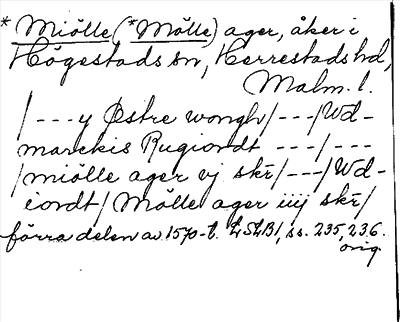 * Miölle (*Mölle) ager, åker i
Högestads sn, Herrestads hd,
Malm. l.
/---y Østre wongh/---/Wd-
marckis Rugiordt ---/---
/miölle ager vj skr̄/---/Wd-
iordt/ Mölle ager iiij skr̄/
förra delen av 1570-t. LSLB1, ss. 235, 236.
orig.